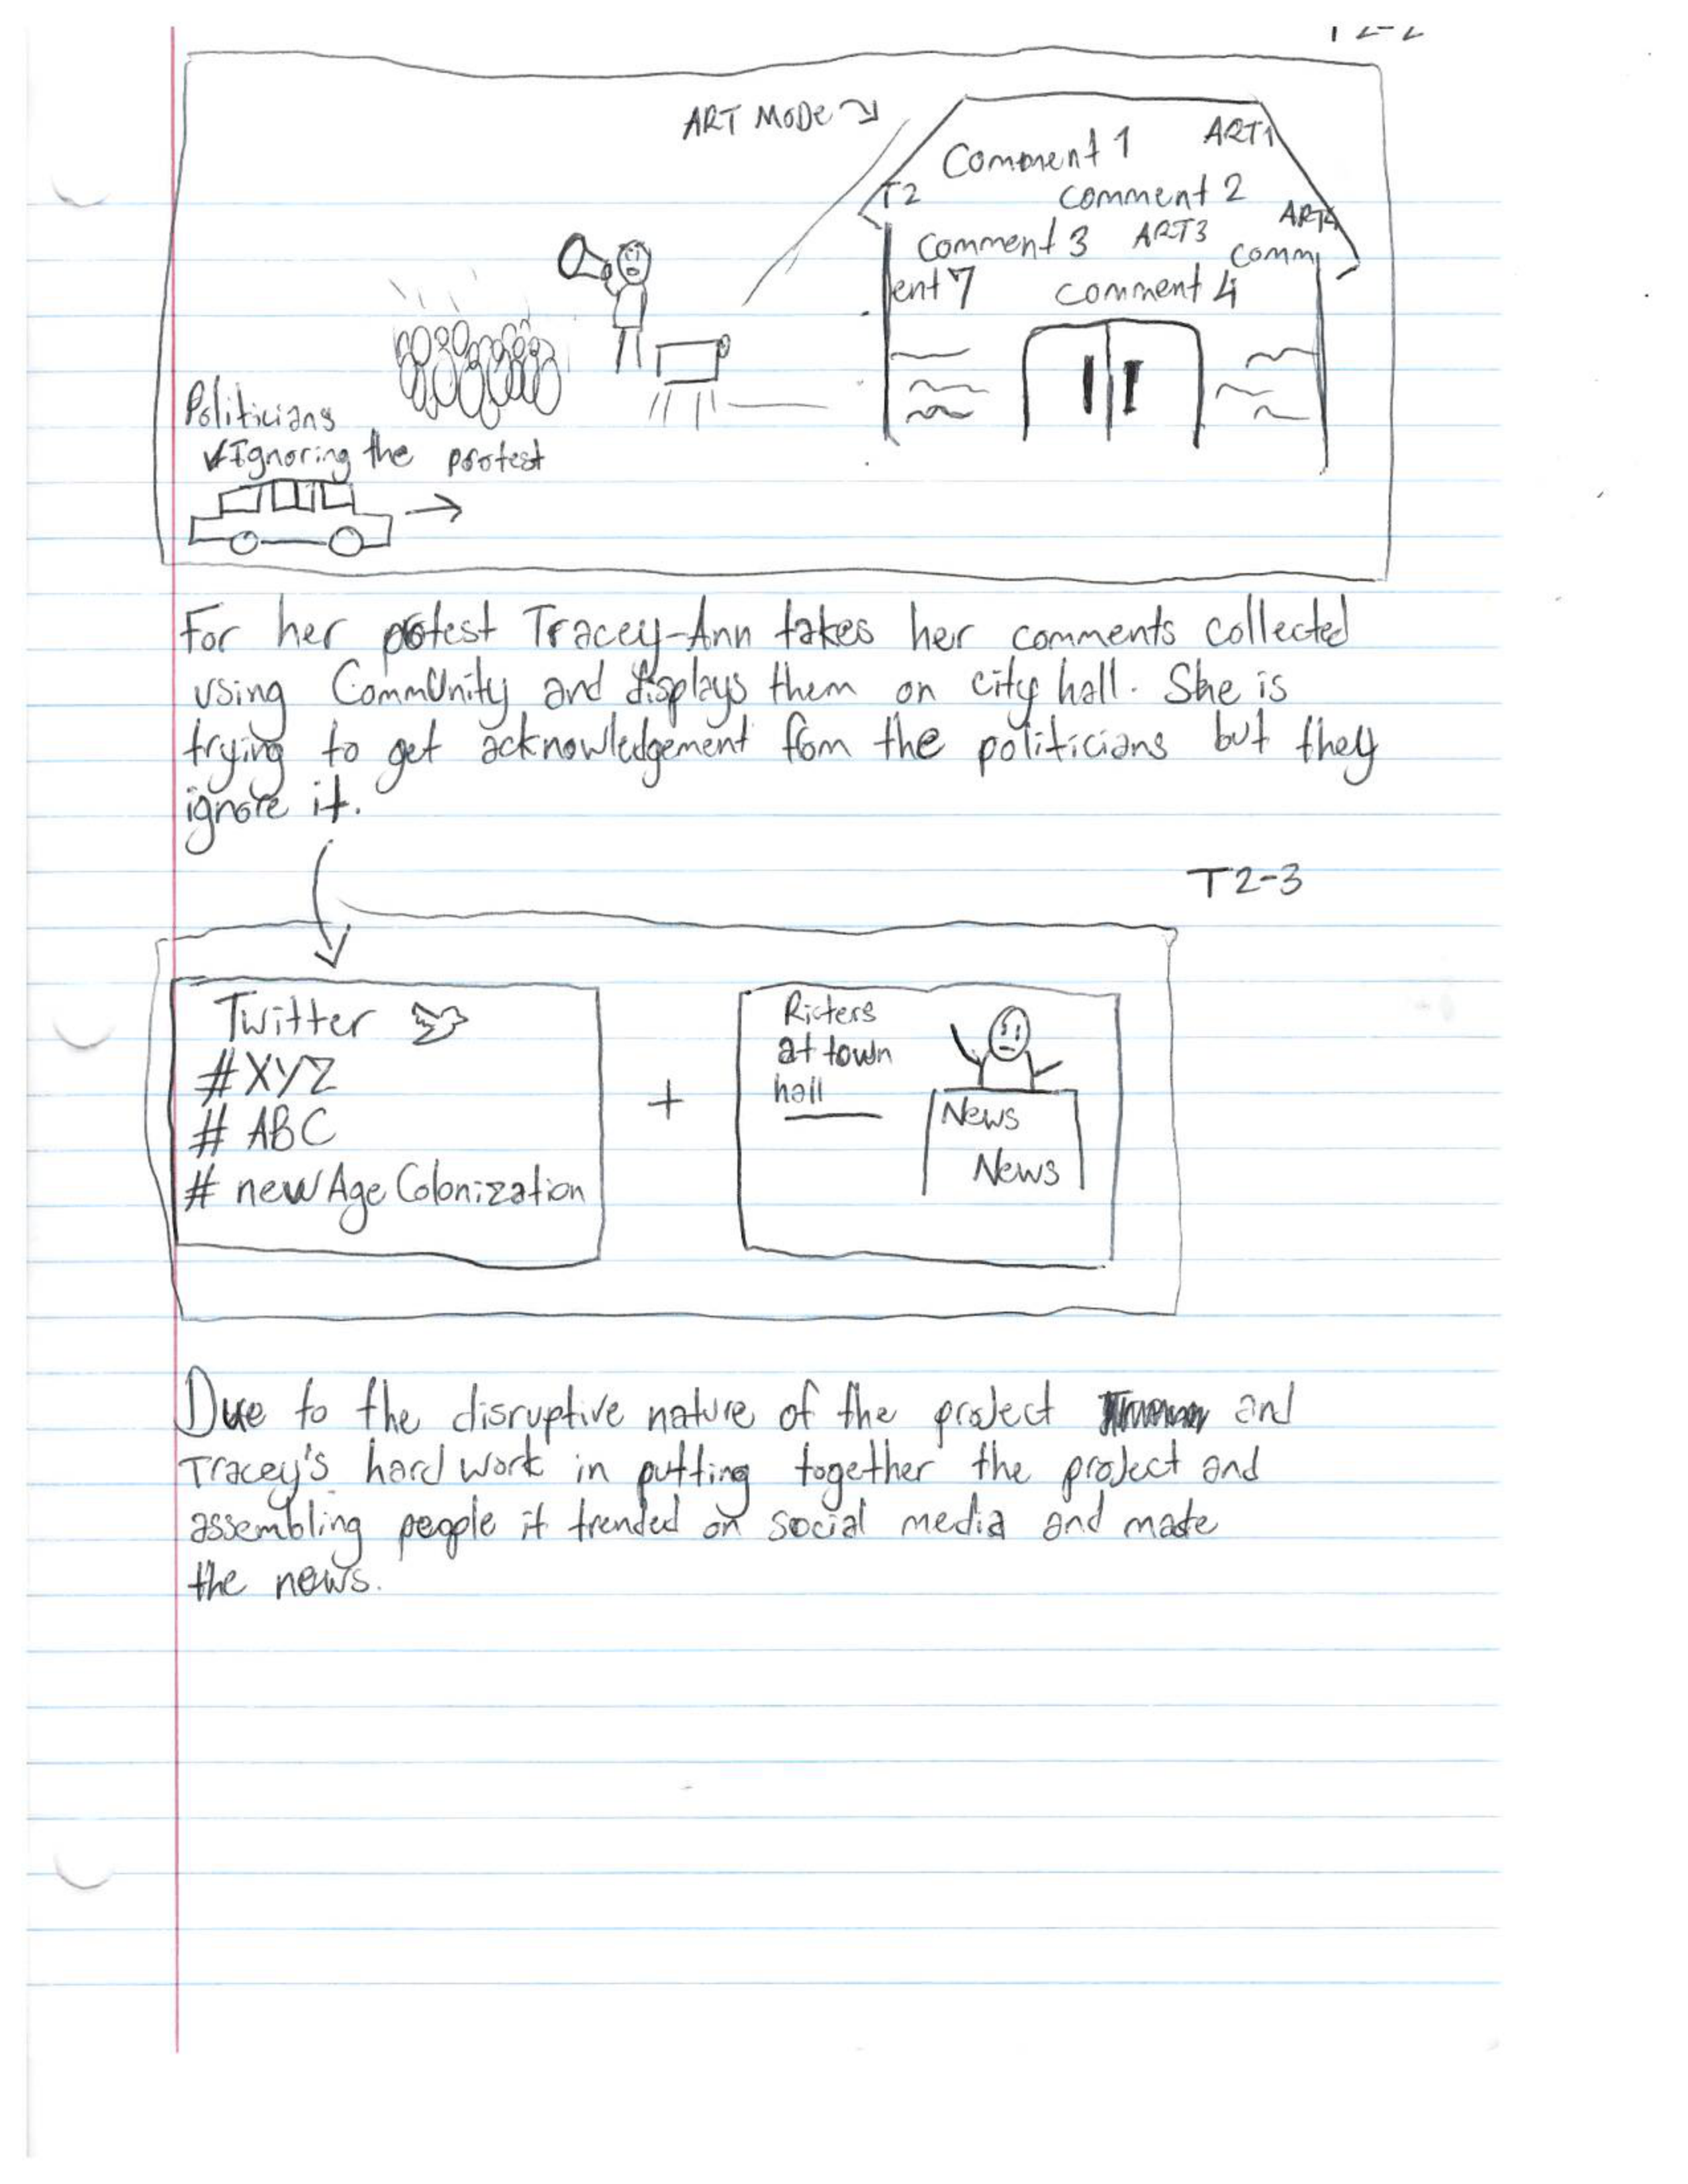 ART MODE
Comment 1
ART1
T2
Comment 2
ART4
Comment 3
ART3
Comm
ent 7
Comment 4
Politicians
Ignoring the protest
For her protest Tracey-Ann takes her comments collected
using CommUnity and displays them on city hall. She is
trying to get acknowledgement fom the politicians but they
ignore it.
T2-3
Twitter
#XYZ
# ABC
# newAge Colonization
+
Rioters
at town
hall
News
News
Due to the disruptive nature of the project and
Tracey's hard work in putting together the project and
assembling people it trended on social media and made
the news.